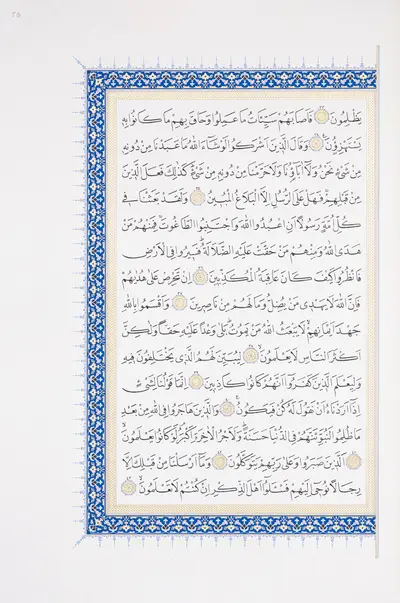 يَظْلِمُونَ فَاَصَابَهُمْ سَيِّـَٔاتُ مَا عَمِلُوا وَحَاقَ بِهِمْ مَا كَانُوا بِهِ
يَسْتَهْزِؤُنَ وَقَالَ الَّذِينَ اَشْرَكُوا لَوْ شَاءَ اللهُ مَا عَبَدْنَا مِنْ دُونِهِ
مِنْ شَيْءٍ نَحْنُ وَلَا اٰبَاؤُنَا وَلَا حَرَّمْنَا مِنْ دُونِهِ مِنْ شَيْءٍ كَذٰلِكَ فَعَلَ الَّذِينَ
مِنْ قَبْلِهِمْ فَهَلْ عَلَى الرُّسُلِ اِلَّا الْبَلَاغُ الْمُبِينُ وَلَقَدْ بَعَثْنَا فِي
كُلِّ اُمَّةٍ رَسُولًا اَنِ اعْبُدُوا اللهَ وَاجْتَنِبُوا الطَّاغُوتَ فَمِنْهُمْ مَنْ
هَدَى اللهُ وَمِنْهُمْ مَنْ حَقَّتْ عَلَيْهِ الضَّلَالَةُ فَسِيرُوا فِي الْاَرْضِ
فَانْظُرُوا كَيْفَ كَانَ عَاقِبَةُ الْمُكَذِّبِينَ اِنْ تَحْرِصْ عَلَى هُدٰيهُمْ
فَاِنَّ اللهَ لَا يَهْدِي مَنْ يُضِلُّ وَمَا لَهُمْ مِنْ نَاصِرِينَ وَاَقْسَمُوا بِاللهِ
جَهْدَ اَيْمَانِهِمْ لَا يَبْعَثُ اللهُ مَنْ يَمُوتُ بَلٰى وَعْدًا عَلَيْهِ حَقًّا وَلٰكِنَّ
اَكْثَرَ النَّاسِ لَا يَعْلَمُونَ لِيُبَيِّنَ لَهُمُ الَّذِي يَخْتَلِفُونَ فِيهِ
وَلِيَعْلَمَ الَّذِينَ كَفَرُوا اَنَّهُمْ كَانُوا كَاذِبِينَ اِنَّمَا قَوْلُنَا لِشَيْءٍ
اِذَا اَرَدْنَاهُ اَنْ نَقُولَ لَهُ كُنْ فَيَكُونُ وَالَّذِينَ هَاجَرُوا فِي اللهِ مِنْ بَعْدِ
مَا ظُلِمُوا لَنُبَوِّئَنَّهُمْ فِي الدُّنْيَا حَسَنَةً وَلَاَجْرُ الْاٰخِرَةِ اَكْبَرُ لَوْ كَانُوا يَعْلَمُونَ
اَلَّذِينَ صَبَرُوا وَعَلٰى رَبِّهِمْ يَتَوَكَّلُونَ وَمَا اَرْسَلْنَا مِنْ قَبْلِكَ اِلَّا
رِجَالًا نُوحِي اِلَيْهِمْ فَسْـَٔلُوا اَهْلَ الذِّكْرِ اِنْ كُنْتُمْ لَا تَعْلَمُونَ